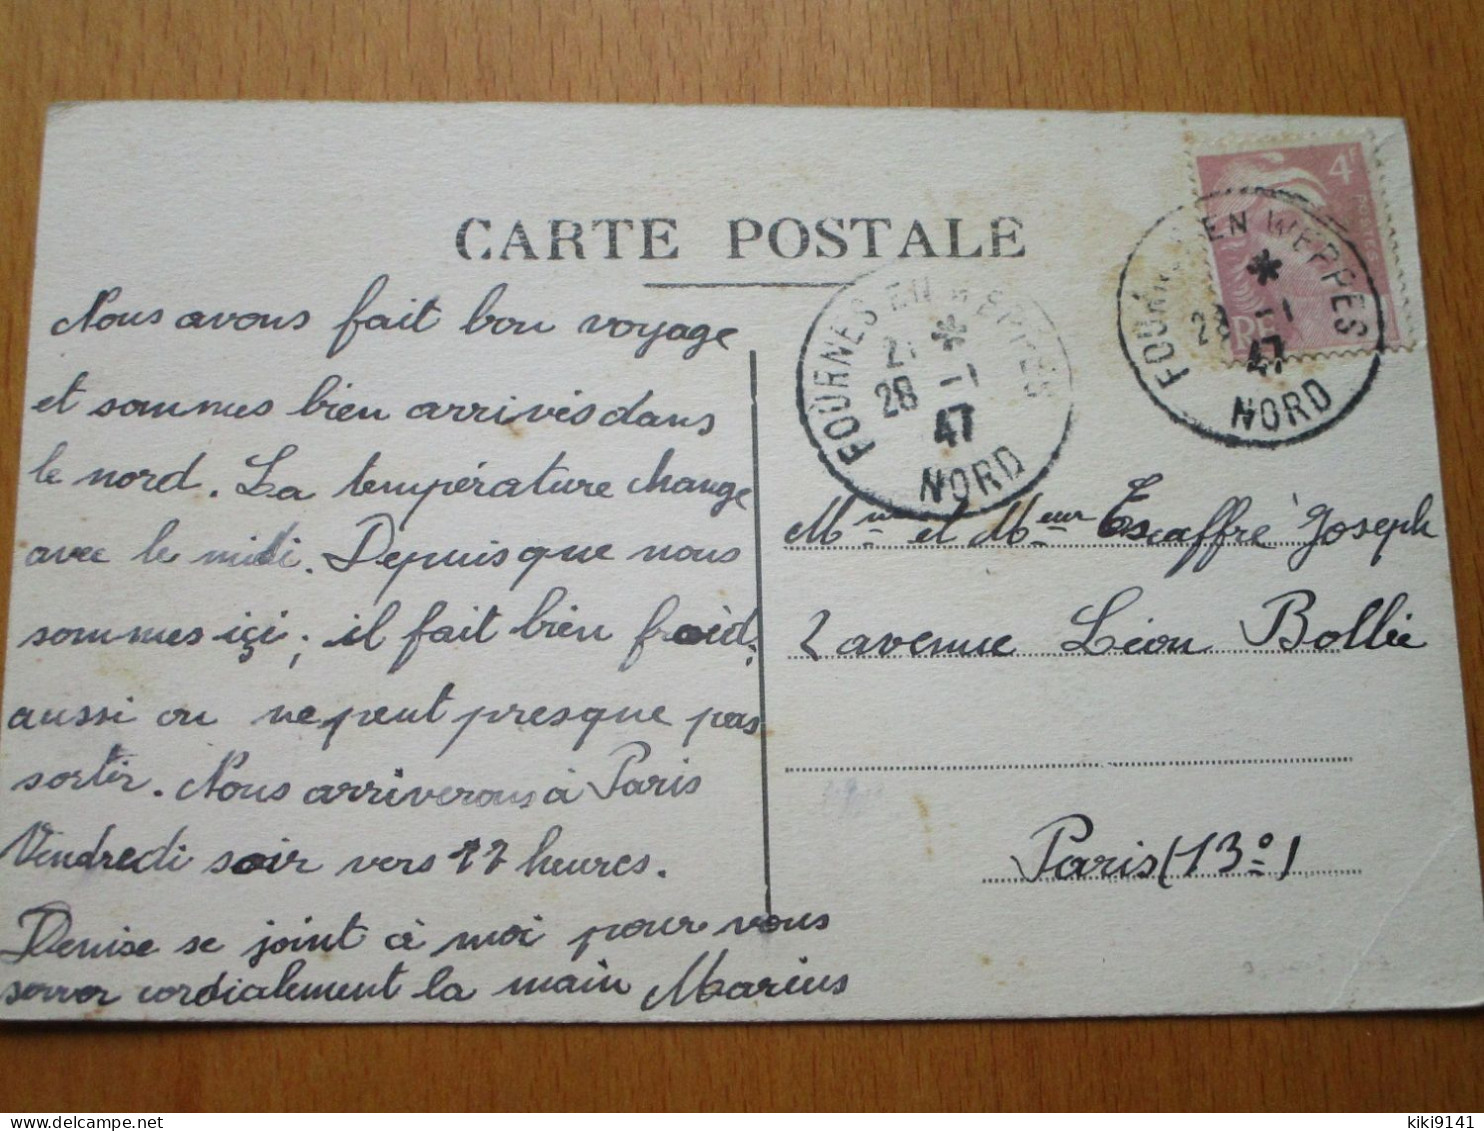 CARTE POSTALE
Nous avons fait bon voyage
et sommes bien arrivés dans
le nord. La température change
avec le midi. Depuis que nous
sommes içi, il fait bien froid,
aussi on ne peut presque pas
sortir. Nous arriverons à Paris
Vendredi soir vers heures.
Denise se joint à moi pour vous
serrer cordialement la main Marius
4F
POSTES
RF
FOURNES EN WEPPES
28 -1
47
NORD
FOURNES EN WEPPES
28 -1
47
NORD
et Escaffre Joseph
2 avenue Léon Bollée
Paris (13°)
kiki9141